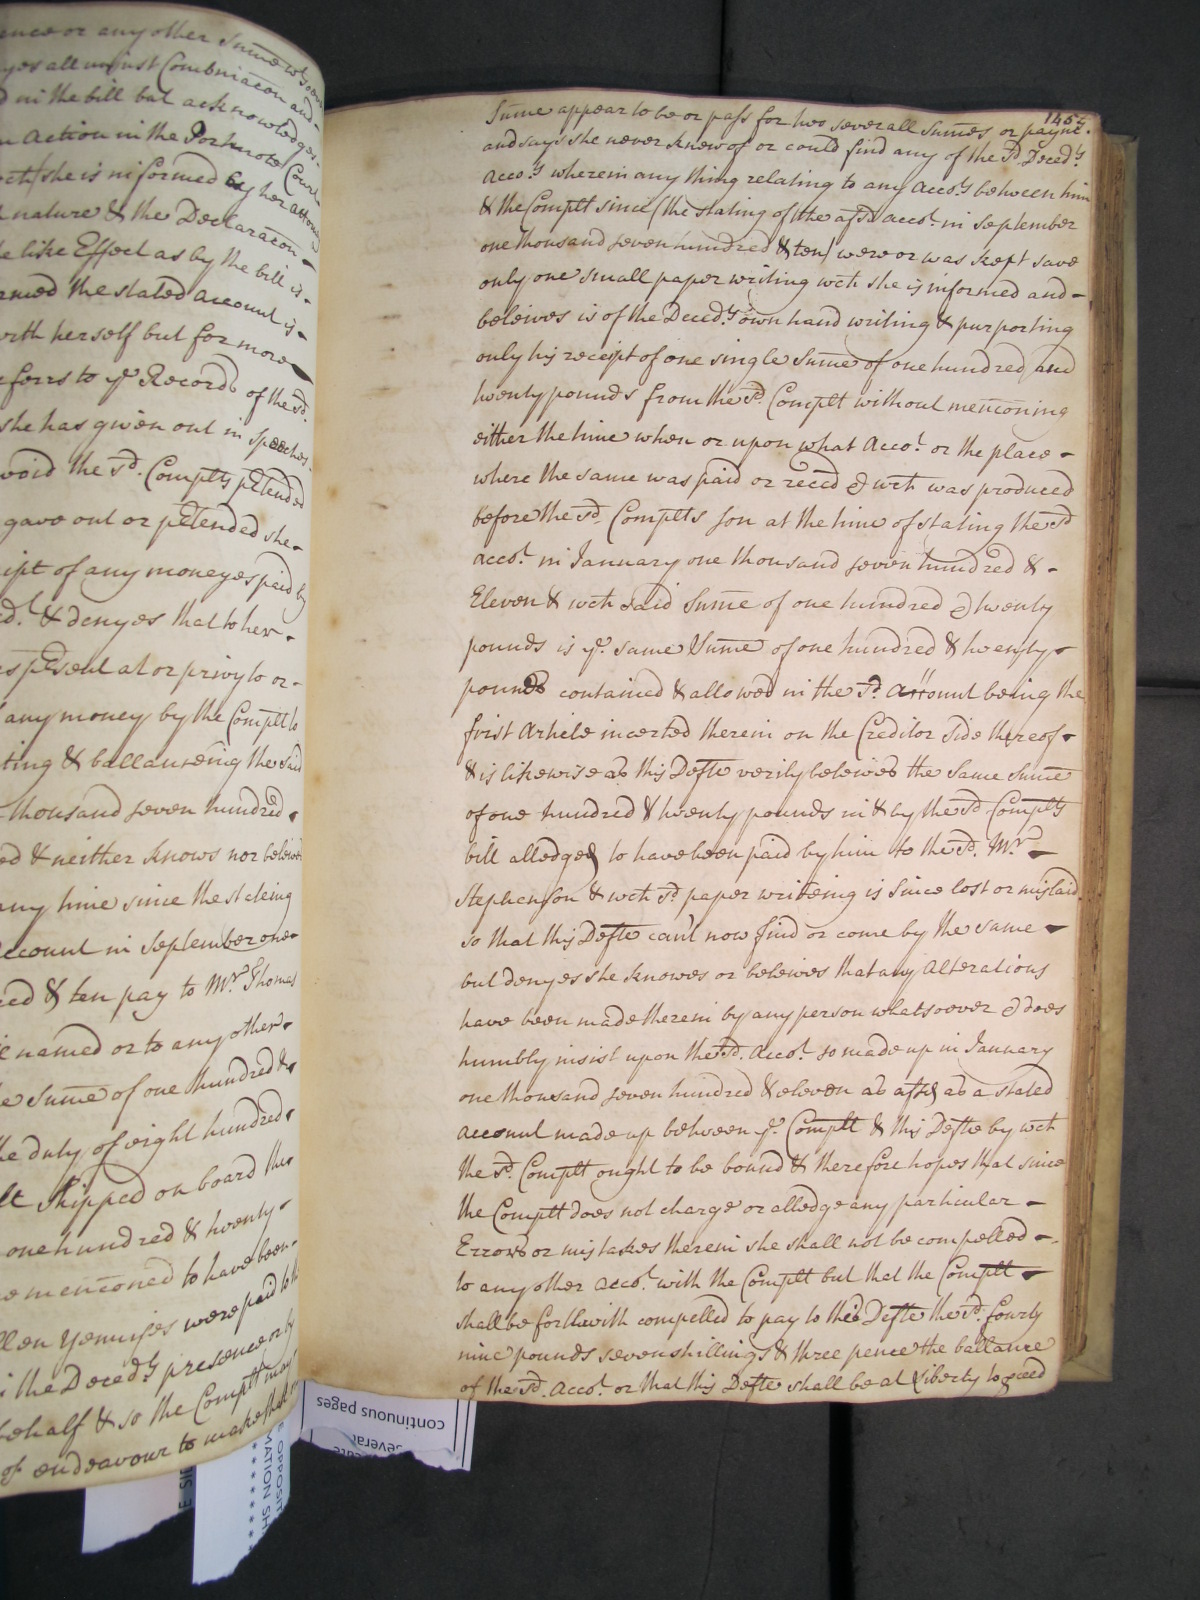 ence or any other Sume wtsoever
yes all unjust Combinacon and
d in the bill but acknowledges
n action in the Porhmote Court
wch she is informed by her attorn
nature & the Declaracon
e like Effect as by the bill is
rmed the stated account is
with herself but for more
referrs to ye. Records of the sd.
she has given out in speeches
void the sd. Complts ptended
gave out or ptended she
ipt of any moneyes paid by
d.t & denyes that to her
es psent at or privy to or
any money by the Complt to
ting & ballanceing the said
thousand seven hundred
ed & neither knows nor beleives
any time since the stateing
account in September one
red & ten pay to Mr. Thomas
e named or to any other
e Sume of one hundred &
the duty of eight hundred
lt shipped on board the
one hundred & twenty
e mencioned to have been
were paid to the
in the Deced.ts presence or by
behalf & so the Complt may
of endeavour to make that
1465
Sume appear to be or pass for two severall Sumes or paymt.
and says she never knew of or could find any of the sd. Deced.ts
Acco.ts wherein any thing relating to any Acco.ts between him
& the Complt since (the stating of the afsd. acco.t in September
one thousand seven hundred & ten) were or was kept save
only one small paper writing wch she is informed and
beleives is of the Deced.ts own hand writing & purporting
only his receipt of one single Sume of one hundred and
twenty pounds from the sd. Complt without mencioning
either the time when or upon what Acco.t or the place
where the same was paid or reced & wch was produced
before the sd. Complts son at the time of stating the sd
acco.t in January one thousand seven hundred &
Eleven & wch said Sume of one hundred & twenty
pounds is ye. same Sume of one hundred & twenty
pounds contained & allowed in the sd. account being the
first Article incerted therein on the Creditor side thereof
& is likewise as this Defte verily beleives the same Sume
of one hundred & twenty pounds in & by the sd. Complts
bill alledged to have been paid by him to the sd. Mr.
Stephenson & wch sd. paper writeing is since lost or mislaid
so that this Defte can't now find or come by the same
but denyes she knowes or beleives that any Alterations
have been made therein by any person whatsoever & does
humbly insist upon the sd. Acco.t so made up in January
one thousand seven hundred & eleven as afsd as a stated
account made up between ye. Complt & this Defte by wch
the sd. Complt ought to be bound & therefore hopes that since
the Complt does not charge or alledge any particular
Errors or mistakes therein she shall not be compelled
to any other acco.t with the Complt but that the Complt
shall be forthwith compelled to pay to this Defte the sd. fourty
nine pounds seven shillings & three pence the ballance
of the sd. Acco.t or that this Defte shall be at Liberty to pceed
continuous pages
several